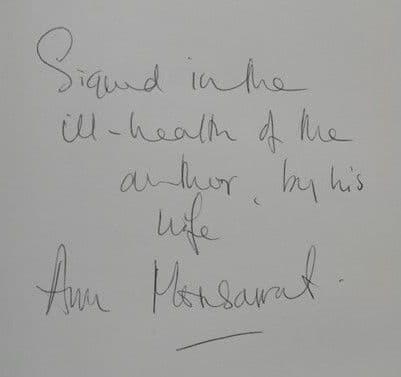 Signed in the
ill-health of the
author, by his
wife
Ann Monsarrat.